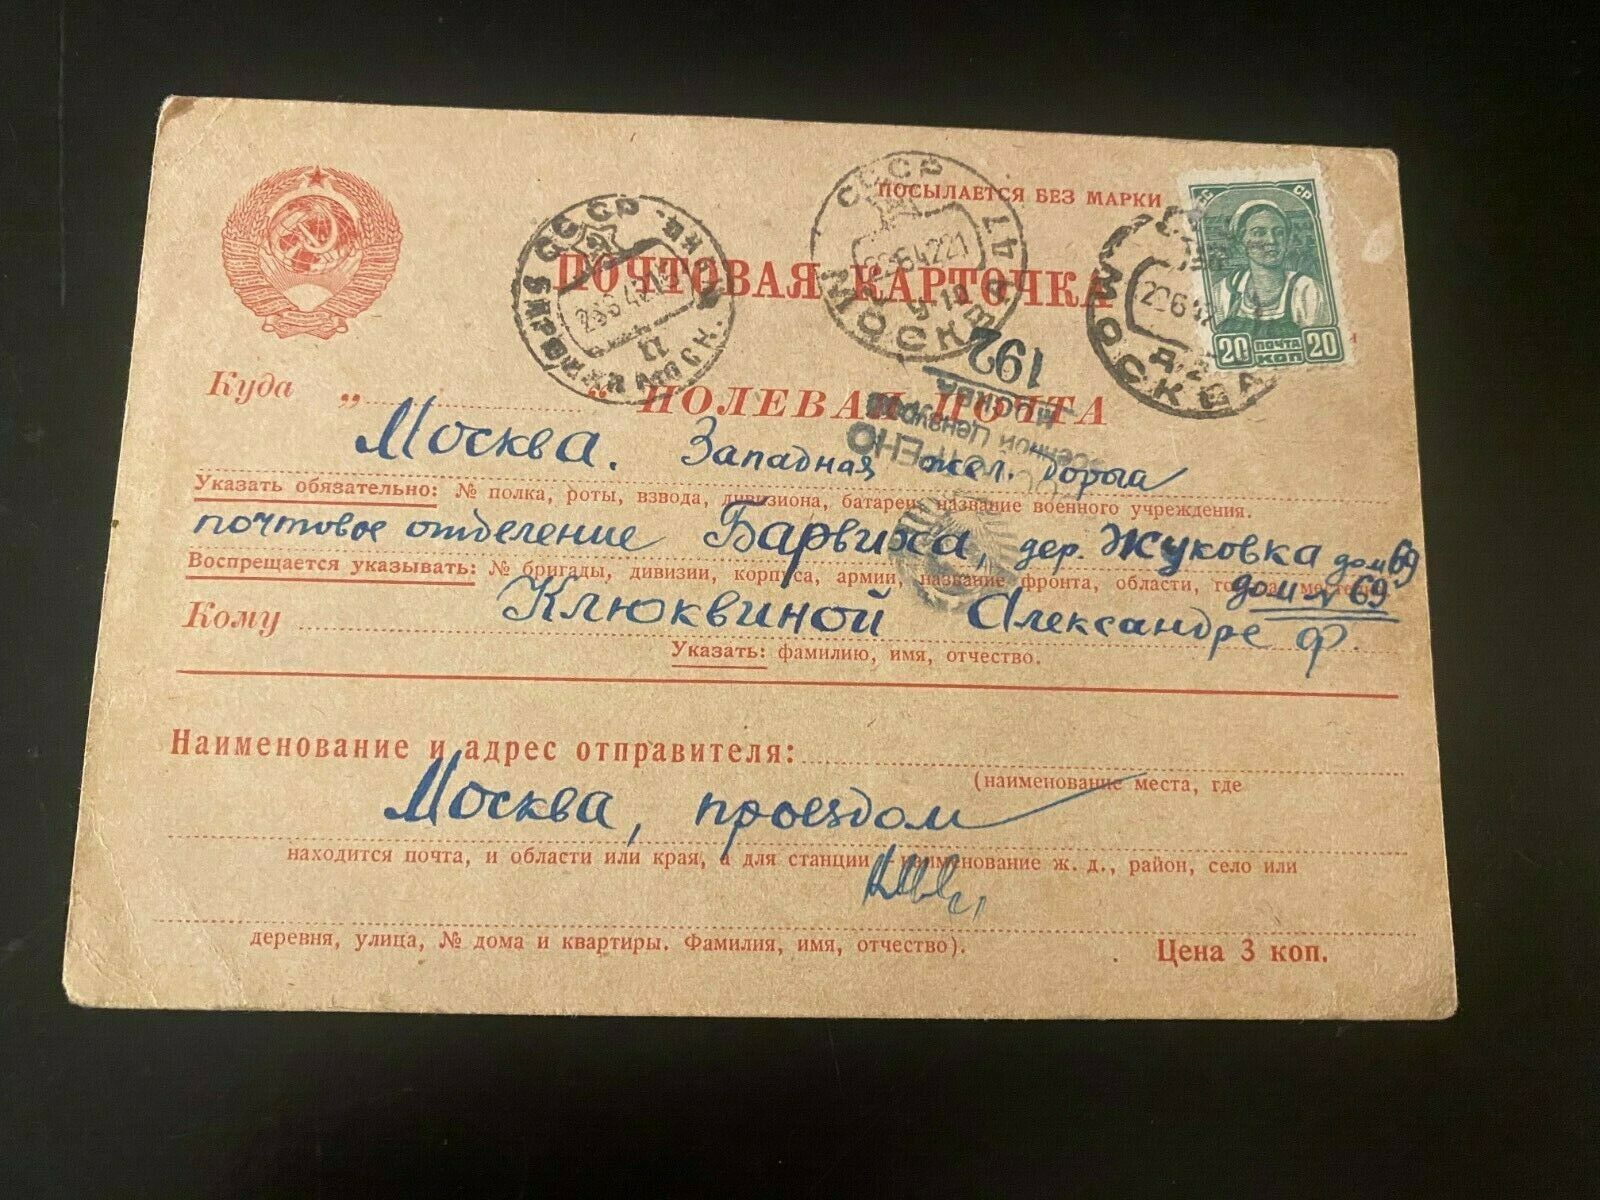 ПОСЫЛАЕТСЯ БЕЗ МАРКИ
ПОЧТОВАЯ КАРТОЧКА
СССР
МОСКВА
СССР
47
22642 21
МОСКВА
МОСКВА
СР
20 ПОЧТА КОП 20
192
Военной Цензурой
Куда „ “ ПОЛЕВАЯ ПОЧТА
Москва. Западная жел. дорога
Указать обязательно: № полка, роты, взвода, дивизиона, батареи, название военного учреждения.
почтовое отделение Барвиха, дер. Жуковка дом 69
Воспрещается указывать: № бригады, дивизии, корпуса, армии, название фронта, области,
дом № 69
Кому Клюквиной Александре Ф.
Указать: фамилию, имя, отчество.
Наименование и адрес отправителя:
(наименование места, где
Москва, проездом
находится почта, и области или края, а для станции - наименование ж. д., район, село или
деревня, улица, № дома и квартиры. Фамилия, имя, отчество).
Цена 3 коп.